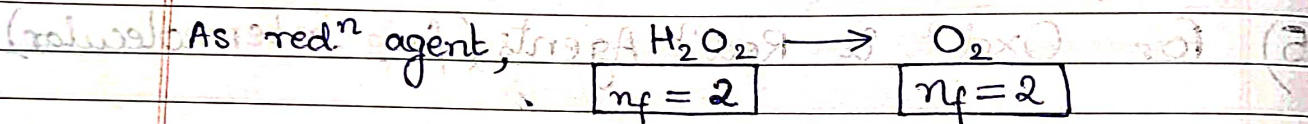 As redⁿ agent, H₂O₂ → O₂
n_f = 2 n_f = 2